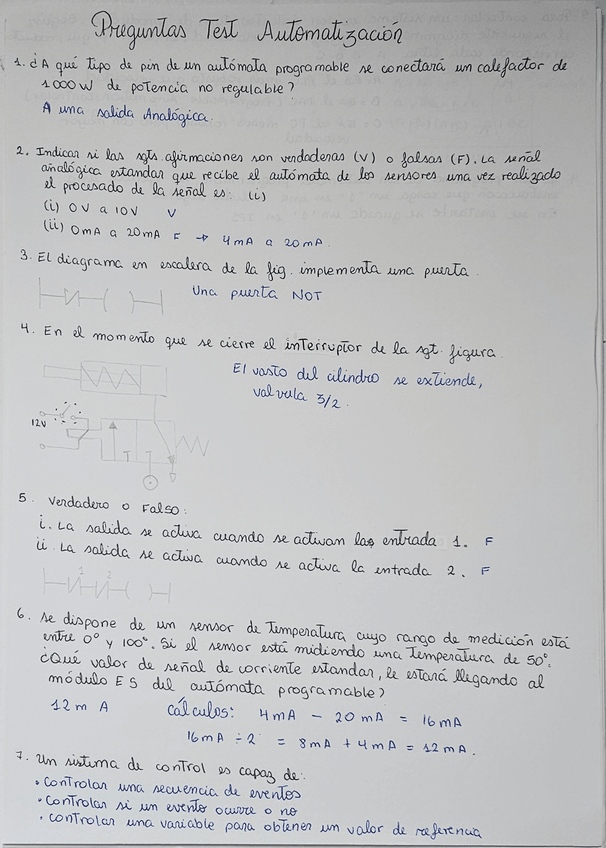 Preguntas Test Automatización
1. ¿A qué tipo de pin de un autómata programable se conectará un calefactor de
1000 W de potencia no regulable?
A una salida Analógica.
2. Indicar si las sgts. afirmaciones son verdaderas (V) o falsas (F). La señal
analógica estandar que recibe el autómata de los sensores una vez realizado
el procesado de la señal es: (i)
(i) 0V a 10V V
(ii) 0mA a 20mA F → 4mA a 20mA.
3. El diagrama en escalera de la fig. implementa una puerta.
Una puerta NOT
4. En el momento que se cierre el interruptor de la sgt. figura.
El vasto del cilindro se extiende,
valvula 3/2.
12V
5. Verdadero o Falso:
i. La salida se activa cuando se activan las entrada 1. F
ii. La salida se activa cuando se activa la entrada 2. F
1 2
6. Se dispone de un sensor de Temperatura cuyo rango de medición está
entre 0° y 100°. Si el sensor está midiendo una Temperatura de 50°.
¿Qué valor de señal de corriente estandar, le estará llegando al
módulo ES del autómata programable?
12 m A cálculos: 4mA - 20 mA = 16mA
16mA ÷ 2 = 8mA + 4mA = 12mA.
7. Un sistema de control es capaz de:
• controlar una secuencia de eventos
• controlar si un evento ocurre o no
• controlar una variable para obtener un valor de referencia